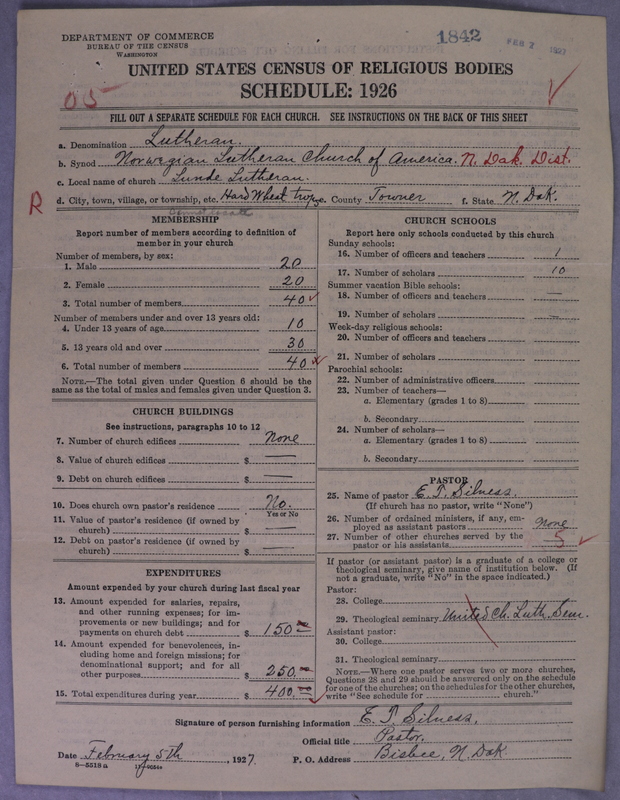 DEPARTMENT OF COMMERCE
BUREAU OF THE CENSUS
WASHINGTON
1842
FEB 7 1927
UNITED STATES CENSUS OF RELIGIOUS BODIES
SCHEDULE: 1926
05
FILL OUT A SEPARATE SCHEDULE FOR EACH CHURCH. SEE INSTRUCTIONS ON THE BACK OF THIS SHEET
a. Denomination Lutheran.
b. Synod Norwegian Lutheran Church of America. N. Dak. Dist.
c. Local name of church Lunde Lutheran.
R
d. City, town, village, or township, etc. Hard Wheat twp. e. County Towner f. State N. Dak.
MEMBERSHIP
Report number of members according to definition of member in your church
Number of members, by sex:
1. Male 20
2. Female 20
3. Total number of members 40
Number of members under and over 13 years old:
4. Under 13 years of age 10
5. 13 years old and over 30
6. Total number of members 40
NOTE.—The total given under Question 6 should be the same as the total of males and females given under Question 3.
CHURCH BUILDINGS
See instructions, paragraphs 10 to 12
7. Number of church edifices None
8. Value of church edifices $ —
9. Debt on church edifices $ —
10. Does church own pastor's residence No.
Yes or No
11. Value of pastor's residence (if owned by church) $ —
12. Debt on pastor's residence (if owned by church) $ —
EXPENDITURES
Amount expended by your church during last fiscal year
13. Amount expended for salaries, repairs, and other running expenses; for improvements or new buildings; and for payments on church debt $ 150.—
14. Amount expended for benevolences, including home and foreign missions; for denominational support; and for all other purposes $ 250.—
15. Total expenditures during year $ 400.—
CHURCH SCHOOLS
Report here only schools conducted by this church
Sunday schools:
16. Number of officers and teachers 1
17. Number of scholars 10
Summer vacation Bible schools:
18. Number of officers and teachers —
19. Number of scholars —
Week-day religious schools:
20. Number of officers and teachers
21. Number of scholars
Parochial schools:
22. Number of administrative officers
23. Number of teachers—
a. Elementary (grades 1 to 8)
b. Secondary
24. Number of scholars—
a. Elementary (grades 1 to 8)
b. Secondary
PASTOR
25. Name of pastor E. T. Silness.
(If church has no pastor, write "None")
26. Number of ordained ministers, if any, employed as assistant pastors None
27. Number of other churches served by the pastor or his assistants 5
If pastor (or assistant pastor) is a graduate of a college or theological seminary, give name of institution below. (If not a graduate, write "No" in the space indicated.)
Pastor:
28. College
29. Theological seminary United Ch. Luth. Sem.
Assistant pastor:
30. College
31. Theological seminary
NOTE.—Where one pastor serves two or more churches, Questions 28 and 29 should be answered only on the schedule for one of the churches; on the schedules for the other churches, write "See schedule for ______ church."
Signature of person furnishing information E. T. Silness.
Official title Pastor.
Date February 5th, 1927. P. O. Address Bisbee, N. Dak.
8—5518 a